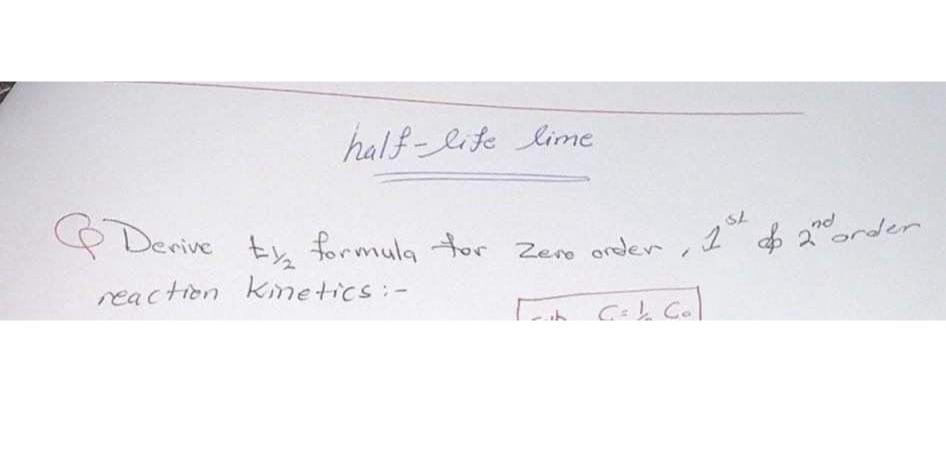 half-life lime
Q Derive t½ formula for Zero order, 1st & 2nd order
reaction kinetics:-
C = ½ C₀